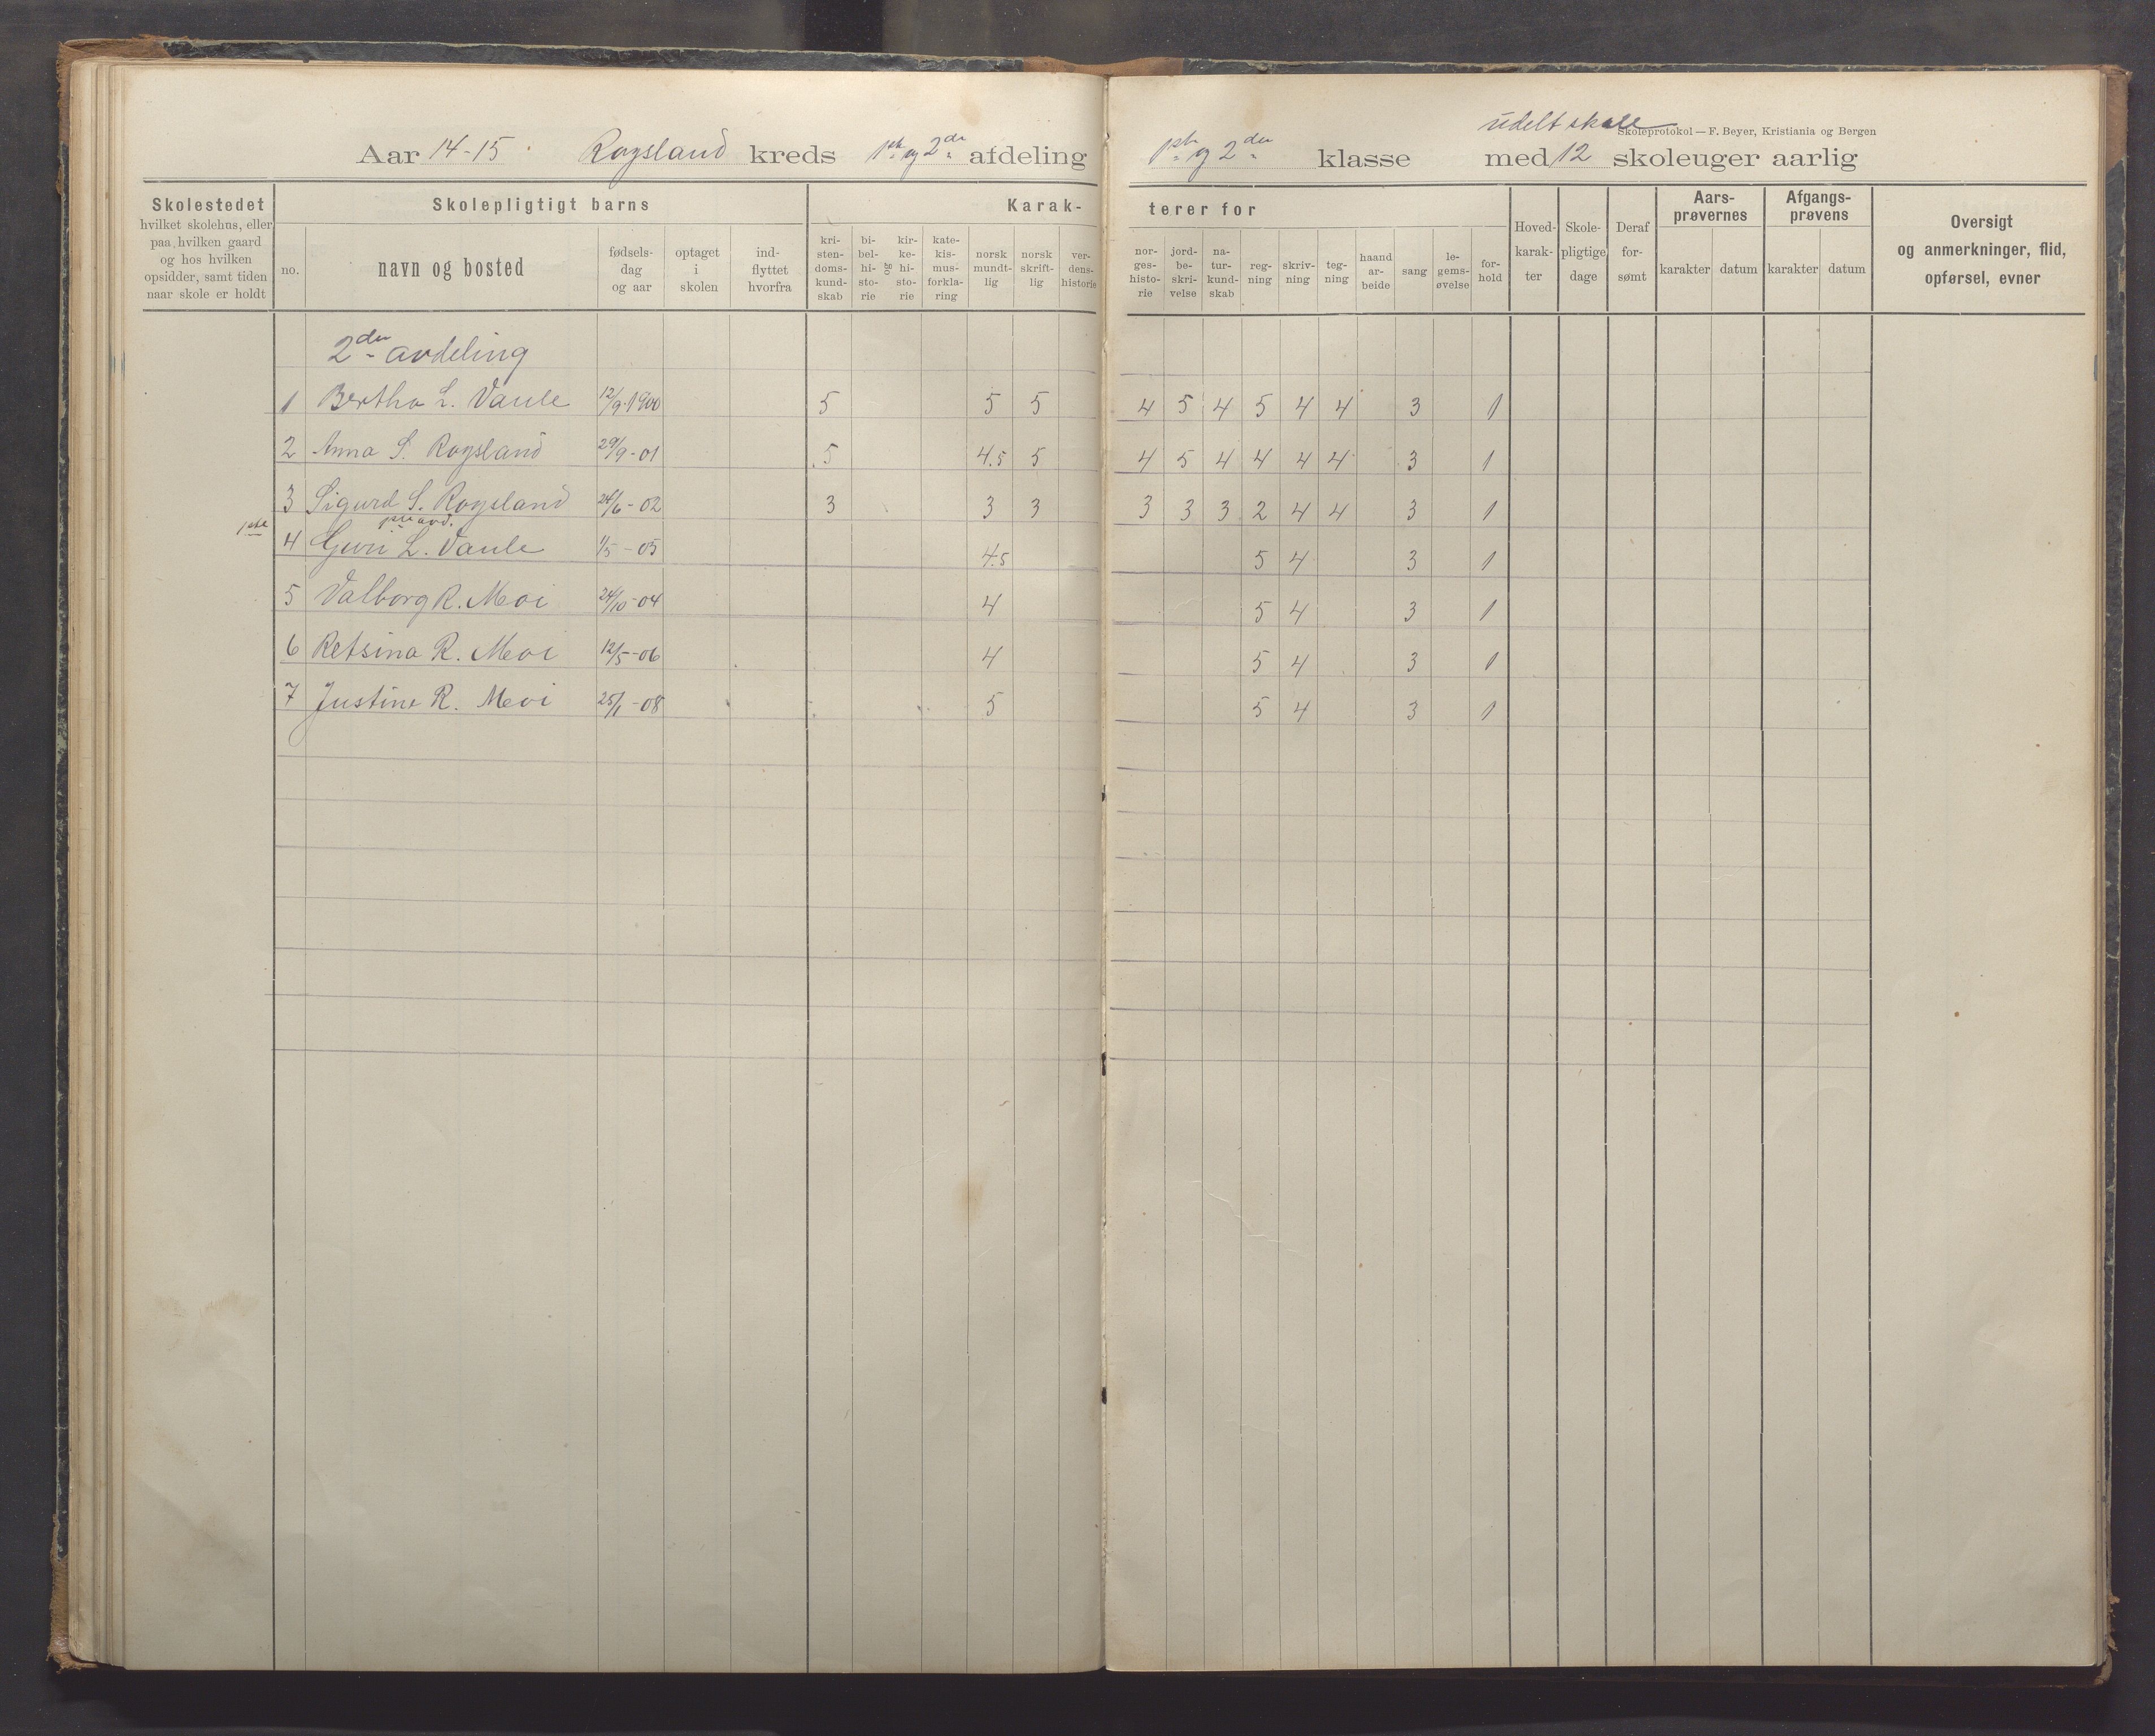 Skoleprotokol — F. Beyer, Kristiania og Bergen
udelt skole
Aar 14-15. Rogsland kreds 1ste og 2den afdeling 1ste og 2den klasse med 12 skoleuger aarlig
Skolestedet
hvilket skolehus, eller
paa hvilken gaard
og hos hvilken
opsidder, samt tiden
naar skole er holdt
Skolepligtigt barns
no.
navn og bosted
fødsels-
dag
og aar
optaget
i
skolen
ind-
flyttet
hvorfra
Karak-
terer for
kri-
sten-
doms-
kund-
skab
bi-
bel-
hi-
sto-
rie
og
kir-
ke-
hi-
sto-
rie
kate-
kis-
mus-
forkla-
ring
norsk
mundt-
lig
norsk
skrift-
lig
ver-
dens-
historie
nor-
ges-
histo-
rie
jord-
be-
skri-
velse
na-
tur-
kund-
skab
reg-
ning
skriv-
ning
teg-
ning
haand
ar-
beide
sang
le-
gems-
øvelse
for-
hold
Hoved-
karak-
ter
Skole-
pligtige
dage
Deraf
for-
sømt
Aars-
prøvernes
karakter datum
Afgangs-
prøvens
karakter datum
Oversigt
og anmerkninger, flid,
opførsel, evner
2den avdeling
1 Bertha L. Vaule 12/9-1900 5 5 5 4 5 4 5 4 4 3 1
2 Anna S. Rogsland 29/9-01 5 4.5 5 4 5 4 4 4 4 3 1
3 Sigurd S. Rogsland 24/6-02 3 3 3 3 3 3 2 4 4 3 1
1ste
4 Guri L. Vaule 1/5-05 4.5 5 4 3 1
5 Valborg R. Moi 24/10-04 4 5 4 3 1
6 Retsina R. Moi 12/5-06 4 5 4 3 1
7 Justine R. Moi 25/1-08 5 5 4 3 1